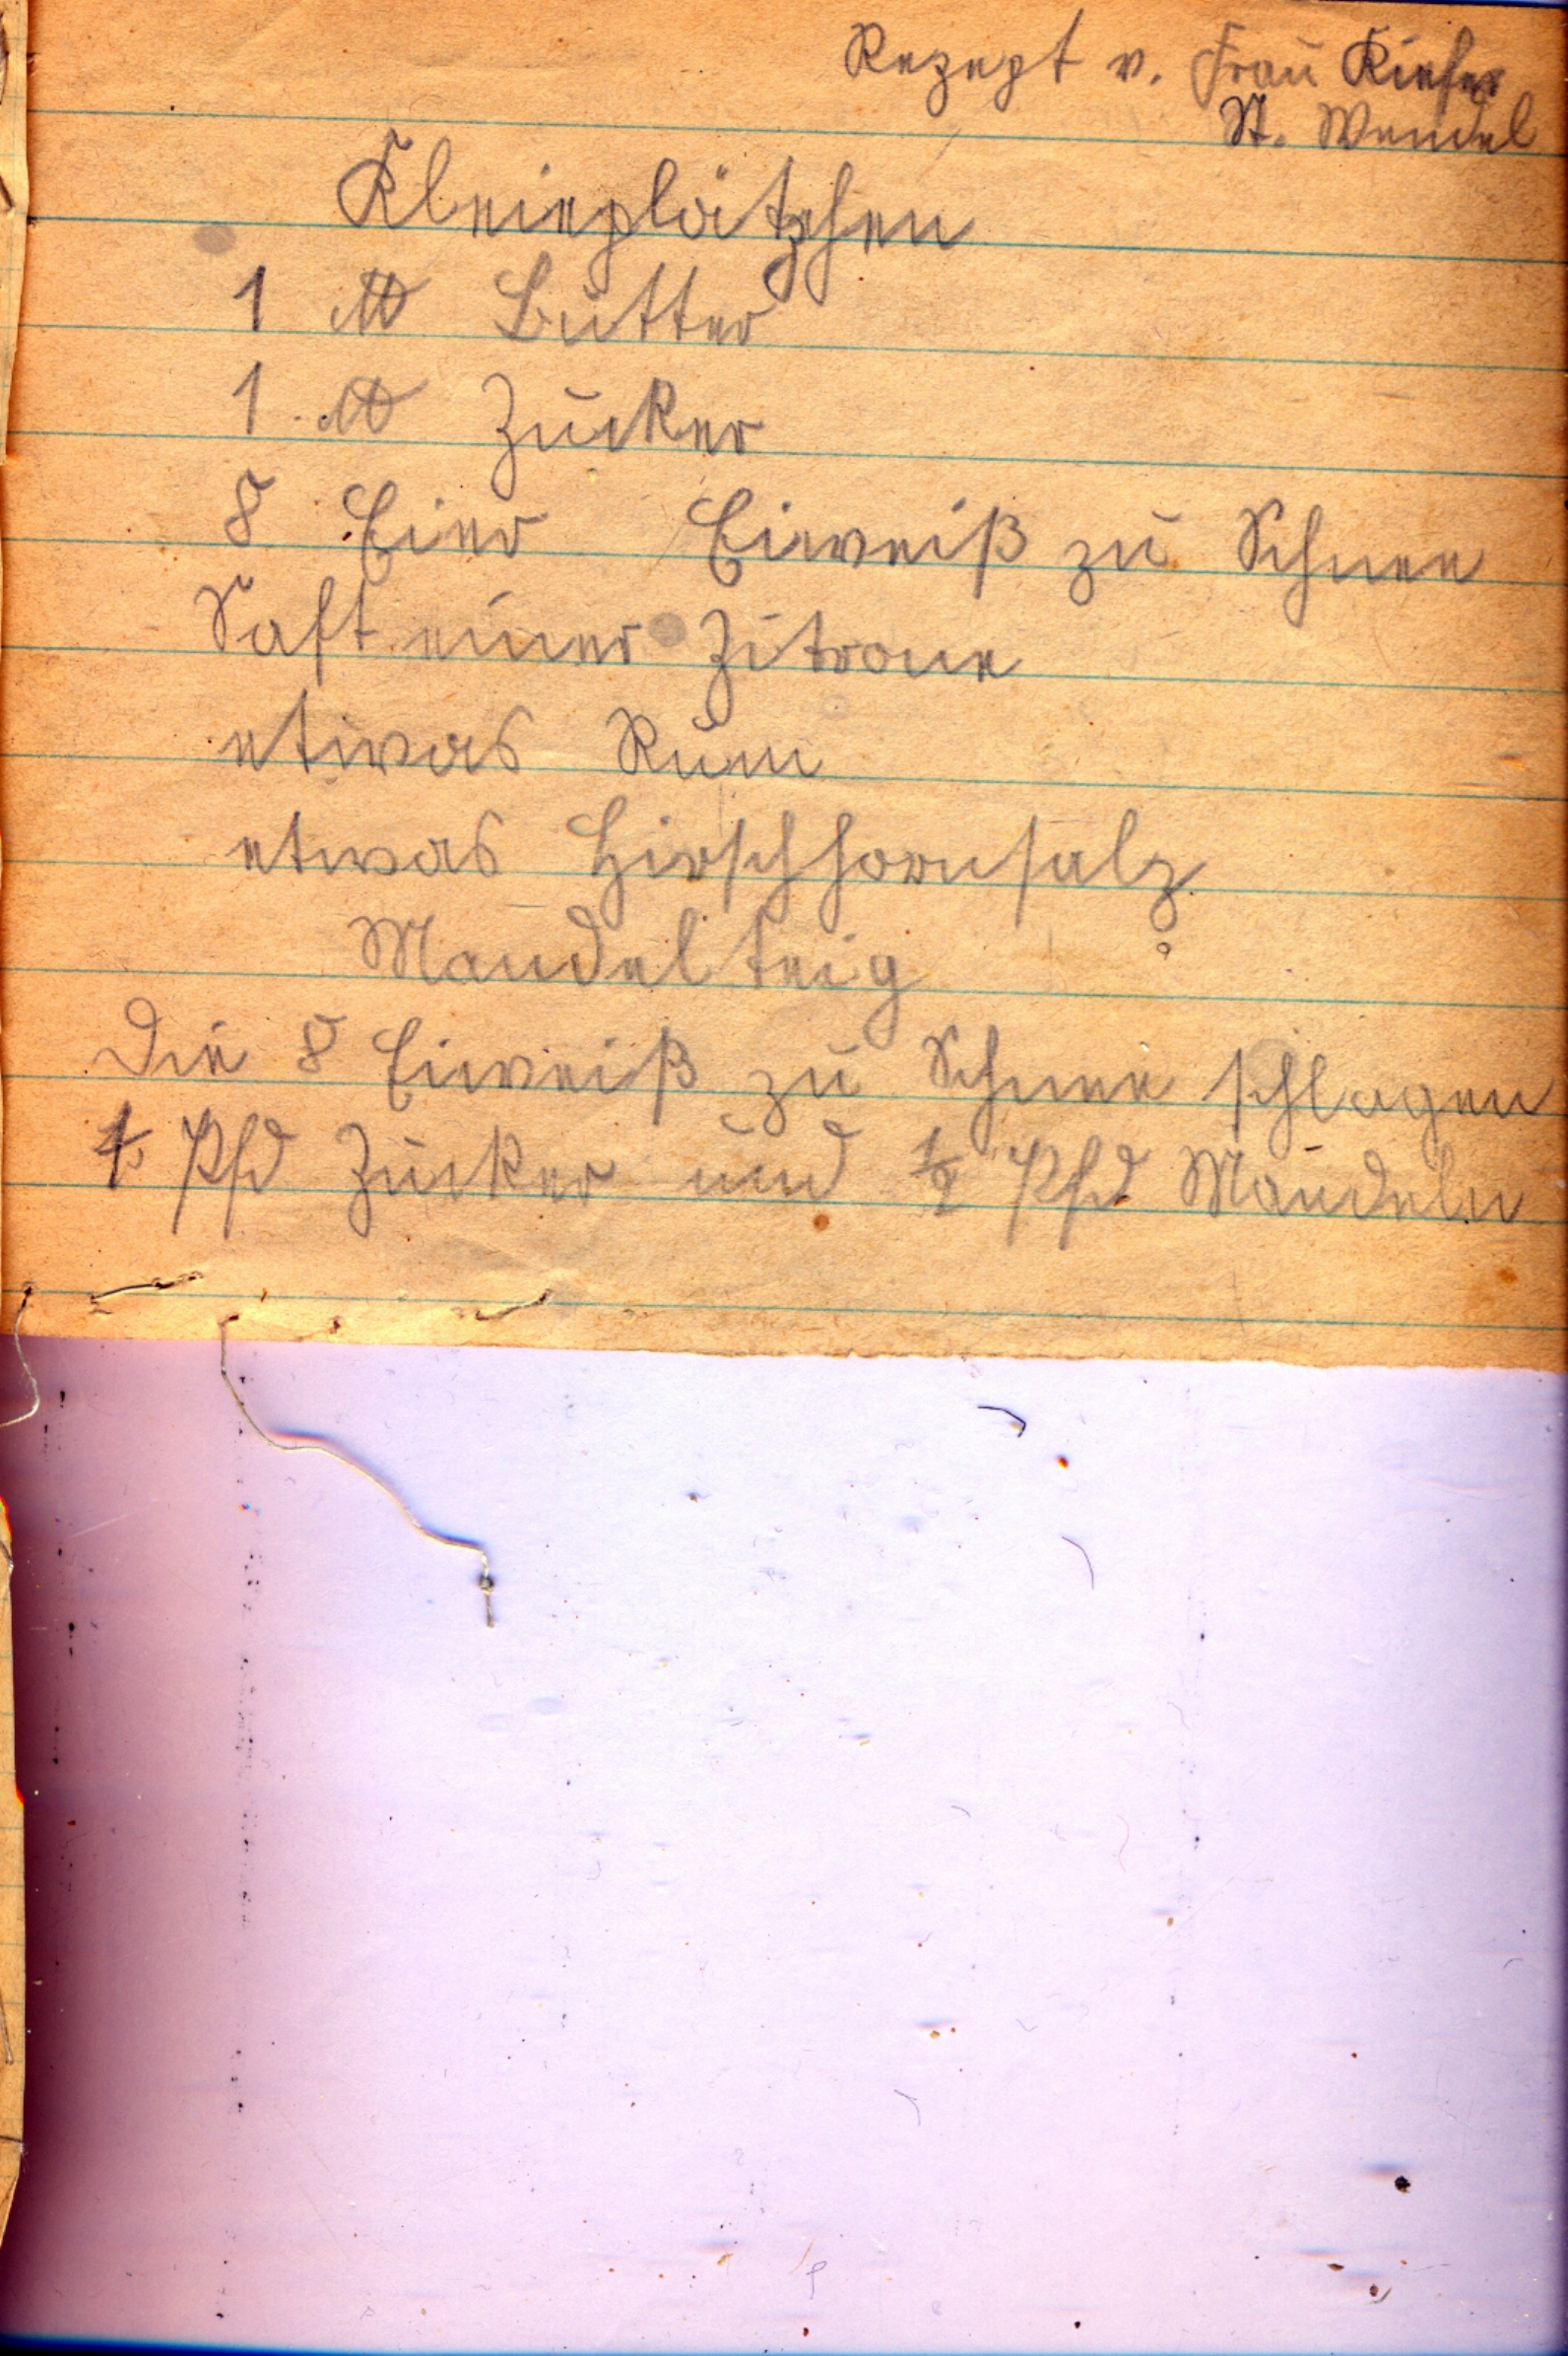 Rezept v. Frau Kiefer
St. Wendel
Kleieplätzchen
1 ℔ Butter
1 ℔ Zucker
8 Eier Eiweiß zu Schnee
Saft einer Zitrone
etwas Rum
etwas Hirschhornsalz
Mandelteig
Die 8 Eiweiß zu Schnee schlagen
Pfd Zucker und ½ Pfd Mandeln